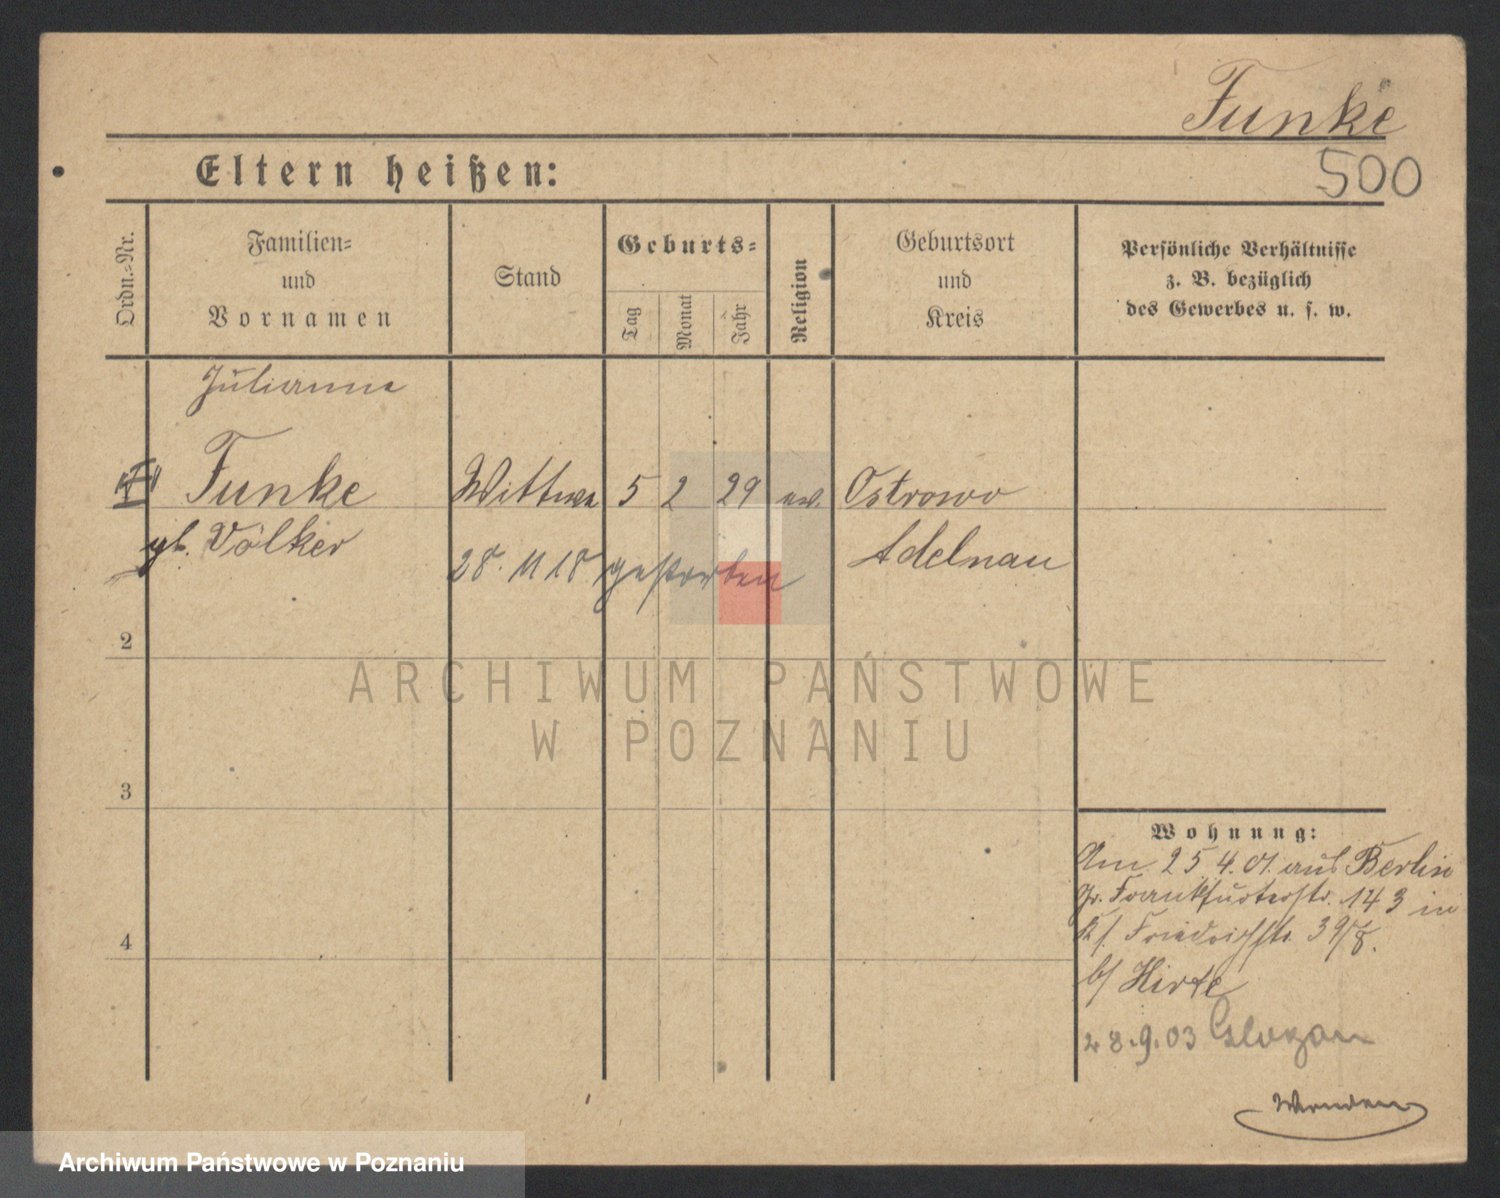 Funke
500
Eltern heißen:
Ordn.-Nr.
Familien-
und
Vornamen
Stand
Geburts-
Tag
Monat
Jahr
Religion
Geburtsort
und
Kreis
Persönliche Verhältnisse
z. B. bezüglich
des Gewerbes u. s. w.
Julianna
Funke Wittwe 5 2 29 ev. Ostrowo
gb. Völker Adelnau
28. 11 18 gestorben
2
3
4
ARCHIWUM PAŃSTWOWE
W POZNANIU
Wohnung:
Am 25 4. 01. aus Berlin
Gr. Frankfurterstr. 143 in
Friedrichstr. 39/8.
b/ Hirte
28.9.03 Glogau
Wenden
Archiwum Państwowe w Poznaniu